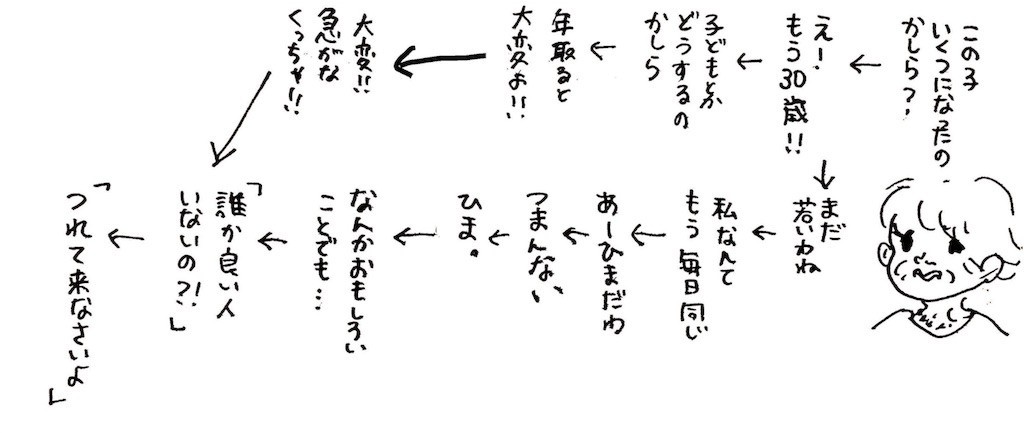 この子
いくつになったの
かしら？
え！
もう30歳!!
子どもとか
どうするの
かしら
年取ると
大変よ!!
大変!!
急がな
くっちゃ!!
まだ
若いわね
私なんて
もう毎日同じ
あーひまだわ
つまんない
ひま。
なんかおもしろい
ことでも…
「誰か良い人
いないの?!」
「つれて来なさいよ」